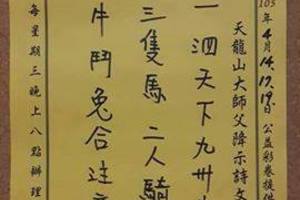 105年4月14.17.19日公益彩券提供
天龍山大師父降示詩文
一泗天下九卅
三隻馬二人騎
牛鬥兔合注意
每星期三晚上八點辦理